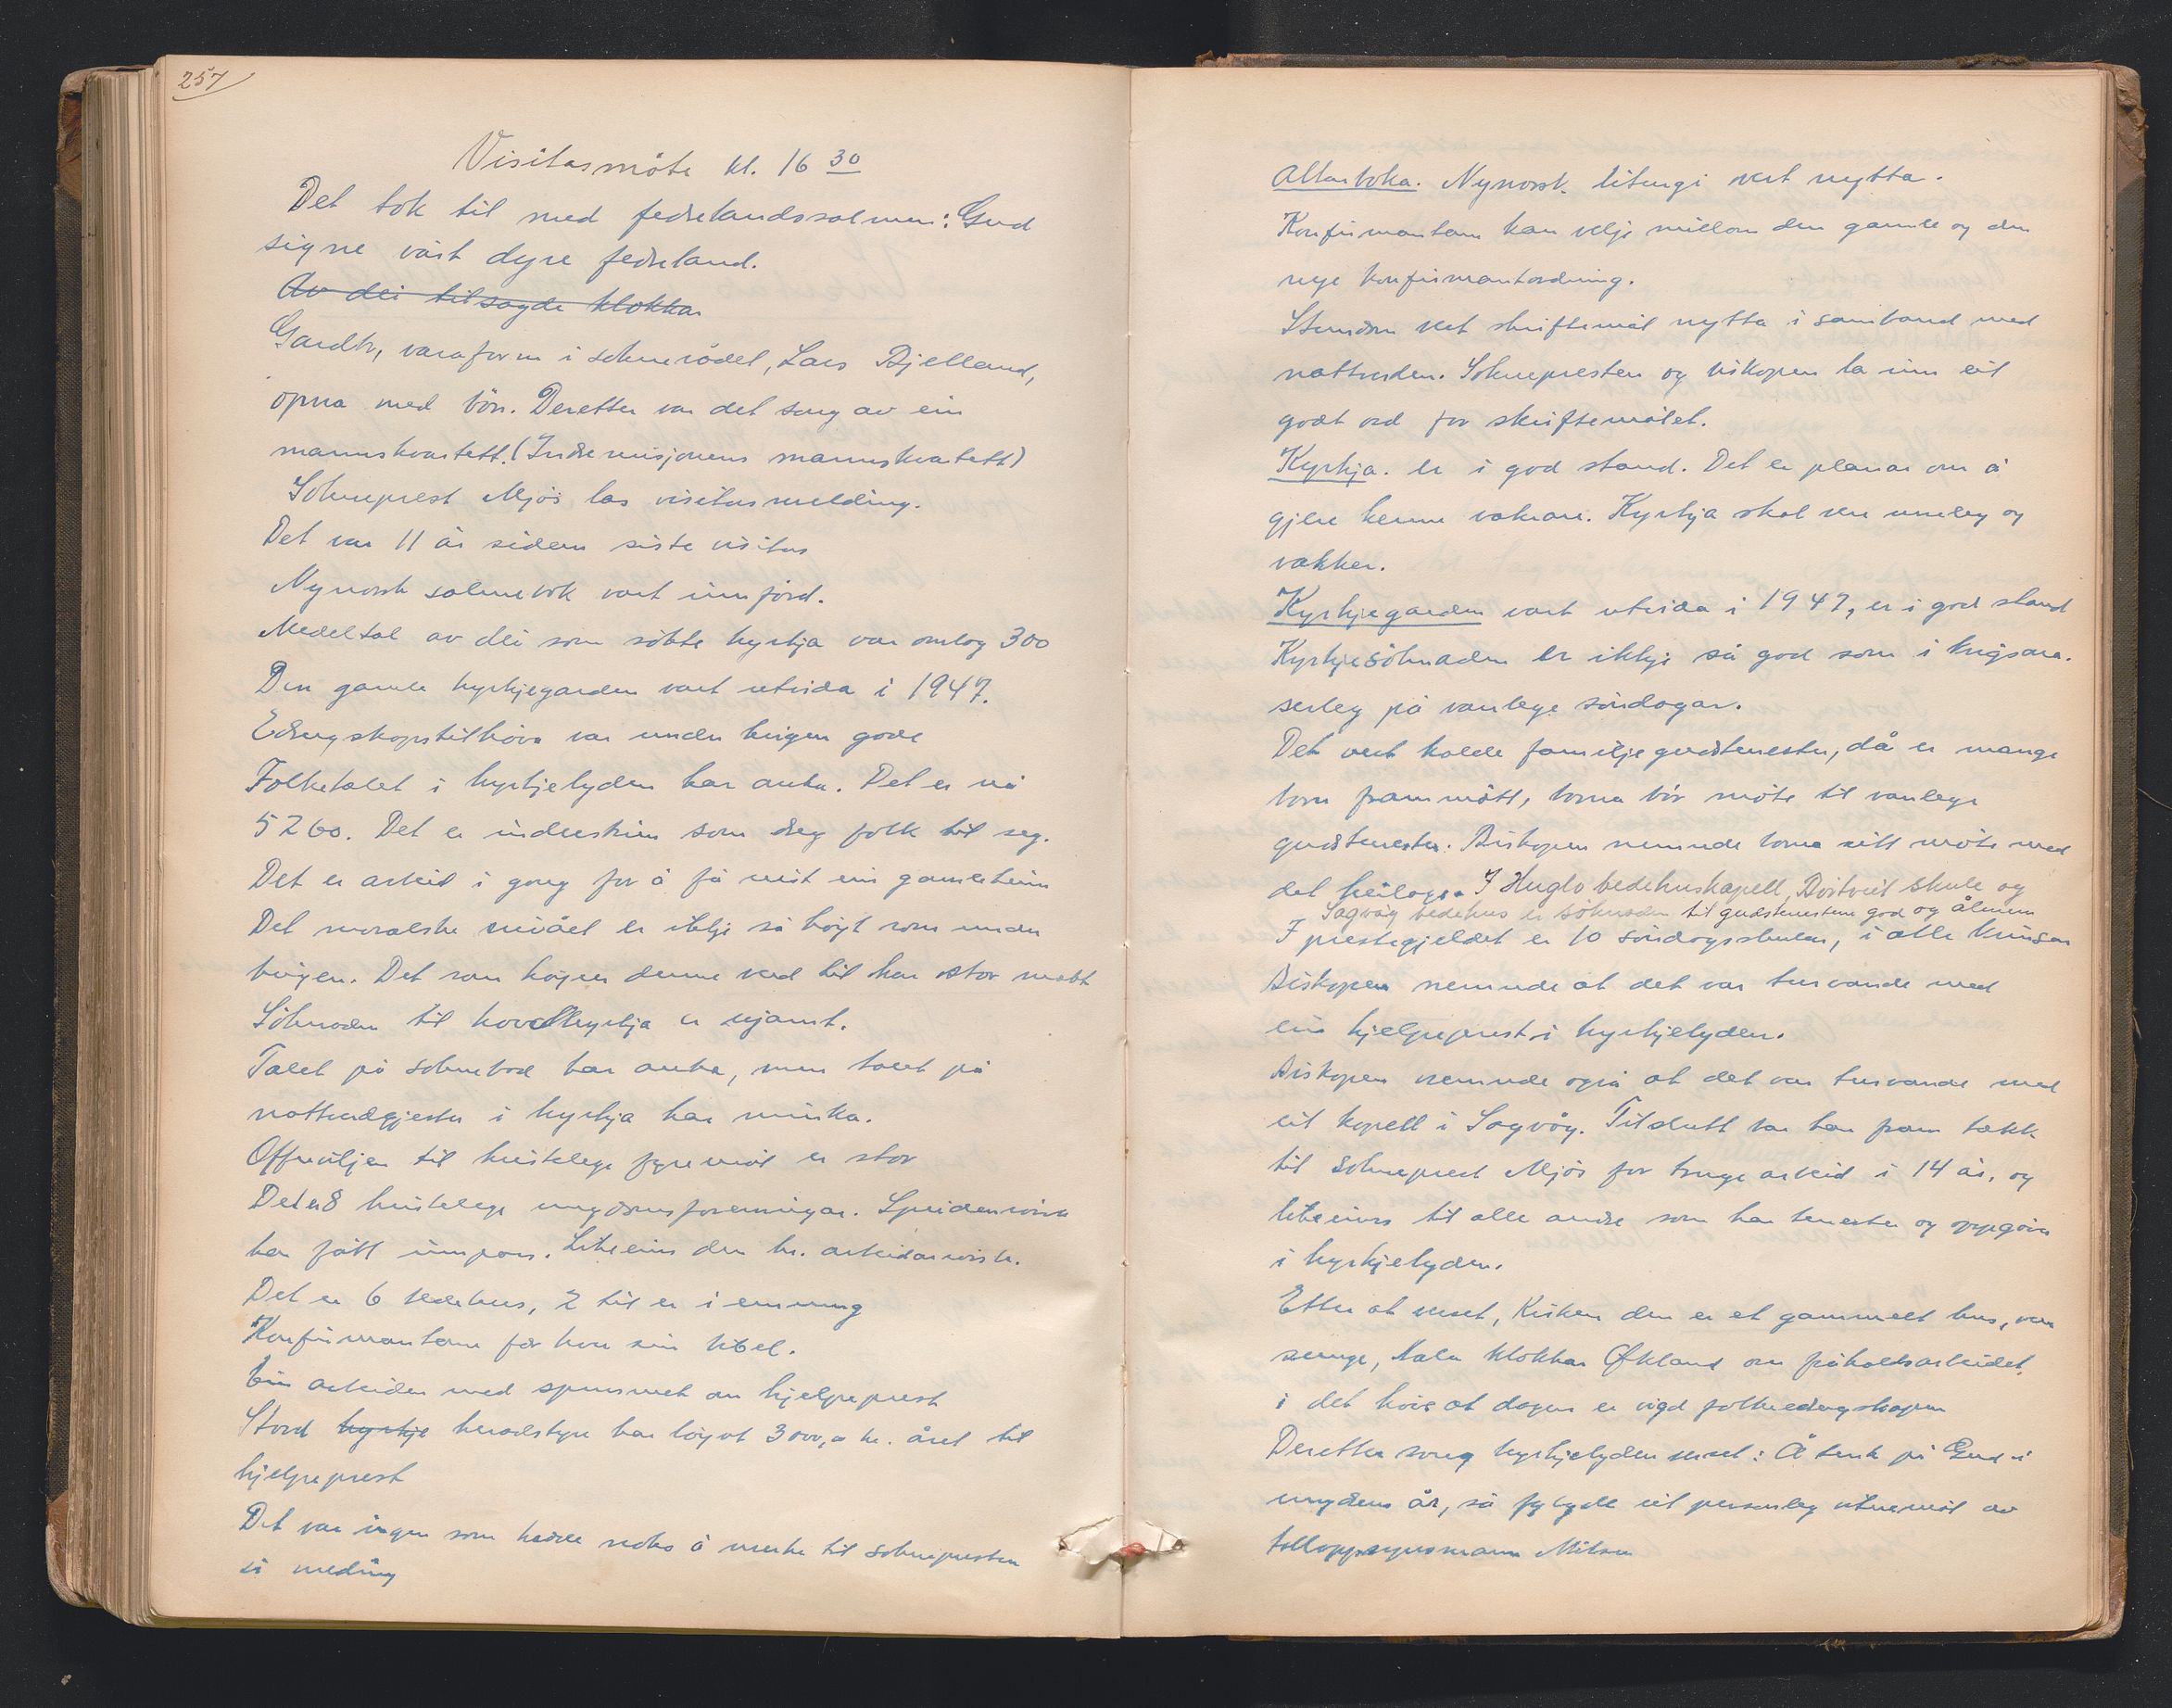 257
Visitasmöte kl. 16 30
Det tok til med fedrelandssalmen: Gud
signe vårt dyre fedreland.
Av dei tilsagde klokkar
Gardbr, varaform i sokneråded, Lars Bjelland,
opna med bön. Deretter var det song av ein
mannskvartett. (Indremisjonens mannskvartett)
Sokneprest Mjös las visitasmelding.
Det var 11 år sidem siste visitas
Nynorsk salmebok vart innförd.
Medeltal av dei som sökte kyrkja var omlag 300
Den gamle kyrkjegarden vart utvida i 1947.
Edrugskapstilhöva var under krigen gode
Folketalet i kyrkjelyden har auka. Det er nå
5260. Det er industrien som dreg folk til seg.
Det er arbeid i gong for å få reist ein gamleheim
Det moralske nivået er ikkje så högt som under
krigen. Det som höyrer denne verd til har stor makt
Söknaden til hovudkyrkja er ujamt.
Talet på soknebod har auka, men talet på
nattverdgjester i kyrkja har minka.
Offerviljen til kristelege fyremål er stor
Det er 8 kristelege ungdomsforeningar. Speidarvirk
har fått innpass. Likeeins den kr. arbeidarvirk.
Det er 6 bedehus, 2 til er i emning
Konfirmantane får kvar sin bibel.
Ein arbeider med spursmet om hjelpeprest
Stord kyrkje heradstyre har löyvt 3000,- kr. året til
hjelpeprest
Det var ingen som hadde noko å merke til soknepresten
si melding
Altarboka. Nynorsk liturgi vert nytta.
Konfirmantane kan velje millom den gamle og den
nye konfirmantordning.
Stundom vert skriftemål nytta i samband med
nattverden. Soknepresten og biskopen la inn eit
godt ord for skriftemålet.
Kyrkja. er i god stand. Det er planar om å
gjere henne vakrare. Kyrkja skal vere umeleg og
vakker.
Kyrkjegarden vart utvida i 1947, er i god stand
Kyrkjesöknaden er ikkje så god som i krigsåra.
serleg på vanlege söndagar.
Det vert halde familjegudstenester, då er mange
born frammött, borna bör möte til vanlege
gudstenester. Biskopen nemnde borna sitt möte med
det heilage. I Huglo bedehuskapell, Börtveit skule og
Sagvåg bedehus er söknaden til gudstenestene god og ålmenn
I prestegjeldet er 10 söndagsskular, i alle krinsar
Biskopen nemnde at det var turvande med
ein hjelpeprest i kyrkjelyden.
Biskopen nemnde også at det var turvande med
eit kapell i Sagvåg. Tilslutt bar han fram takk
til sokneprest Mjös for truge arbeid i 14 år, og
likeeins til alle andre som har tenester og oppgåver
i kyrkjelyden.
Etter at verset, Kirken den er et gammelt hus, var
sunge, tala klokkar Økland om fråhaldsarbeidet,
i det höve at dagen er vigd folkeedrugskapen
Deretter song kyrkjelyden verset: Å tenk på Gud i
ungdoms år, så fylgde eit personleg vitnemål av
tolloppsynsmann Nilsen